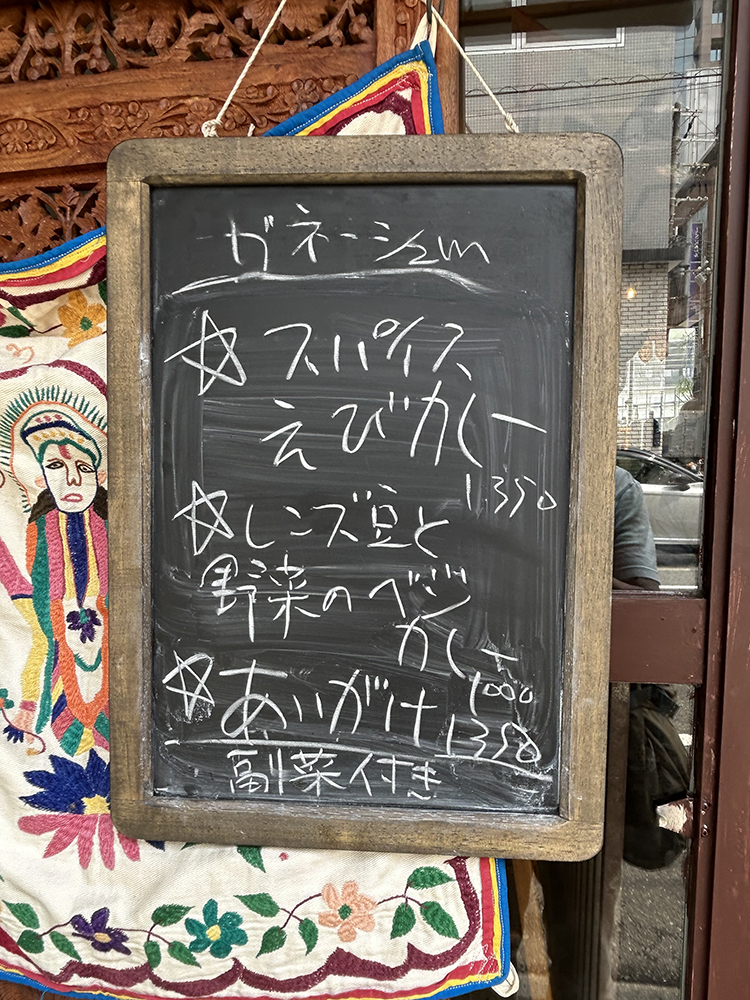 ガネーシュm
☆スパイス
えびカレー
1350
☆レンズ豆と
野菜のベジ
カレー
1000
☆あいがけ 1350
副菜付き